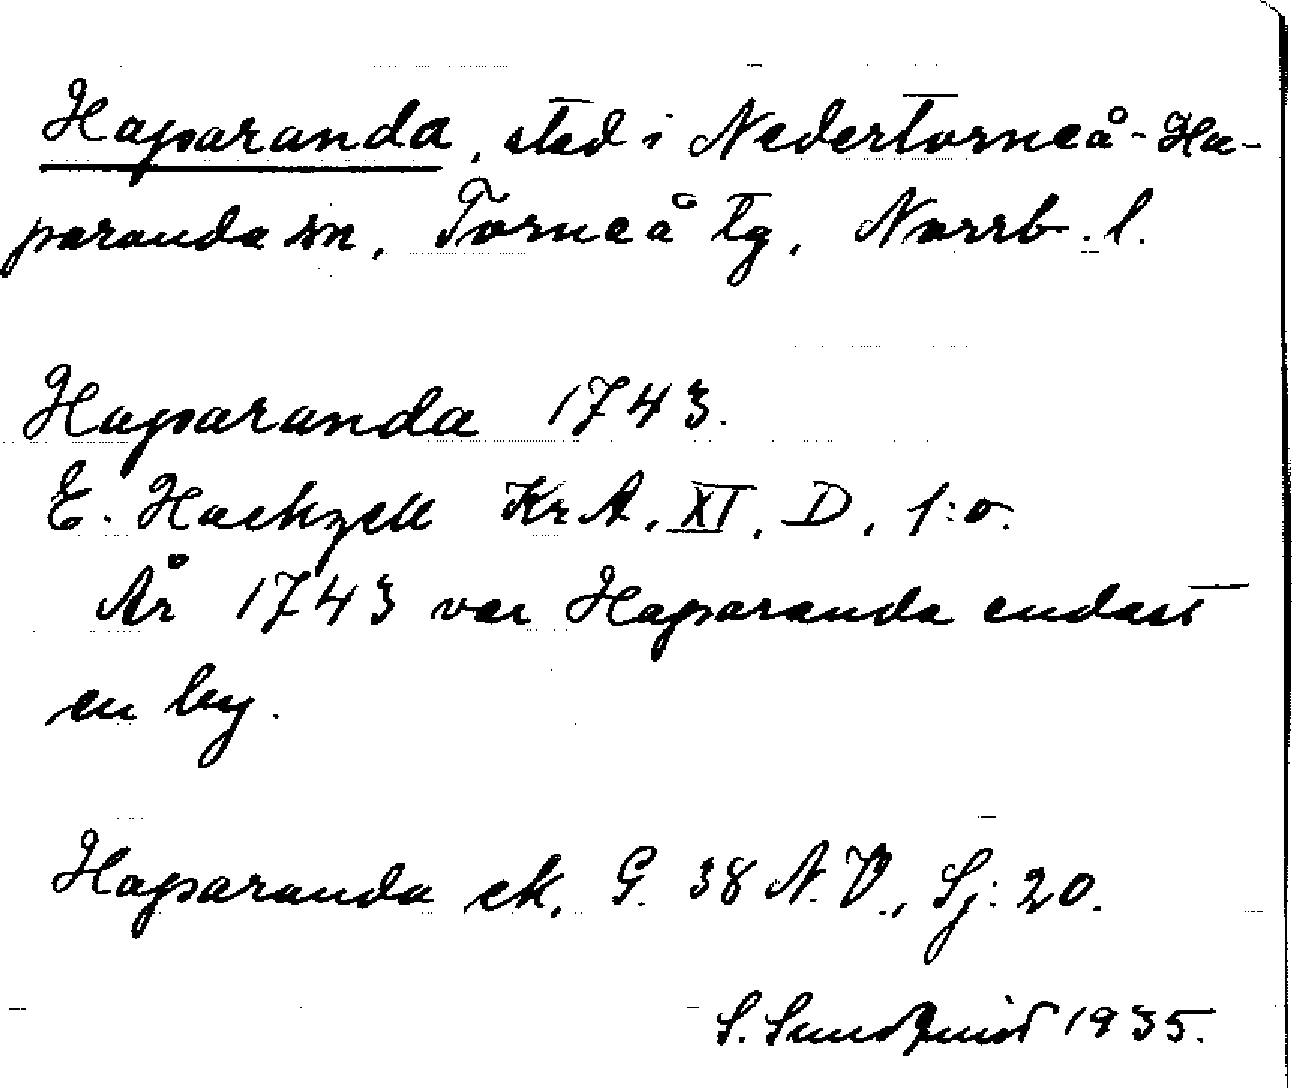 Haparanda, stad i Nedertorneå-Ha-
paranda sn, Torneå tg, Norrb. l.
Haparanda 1743.
E. Hackzell KrA. XI. D. 1:o.
År 1743 var Haparanda endast
en by.
Haparanda ek. G. 38 N.V., Sj: 20.
S. Sundquist 1935.